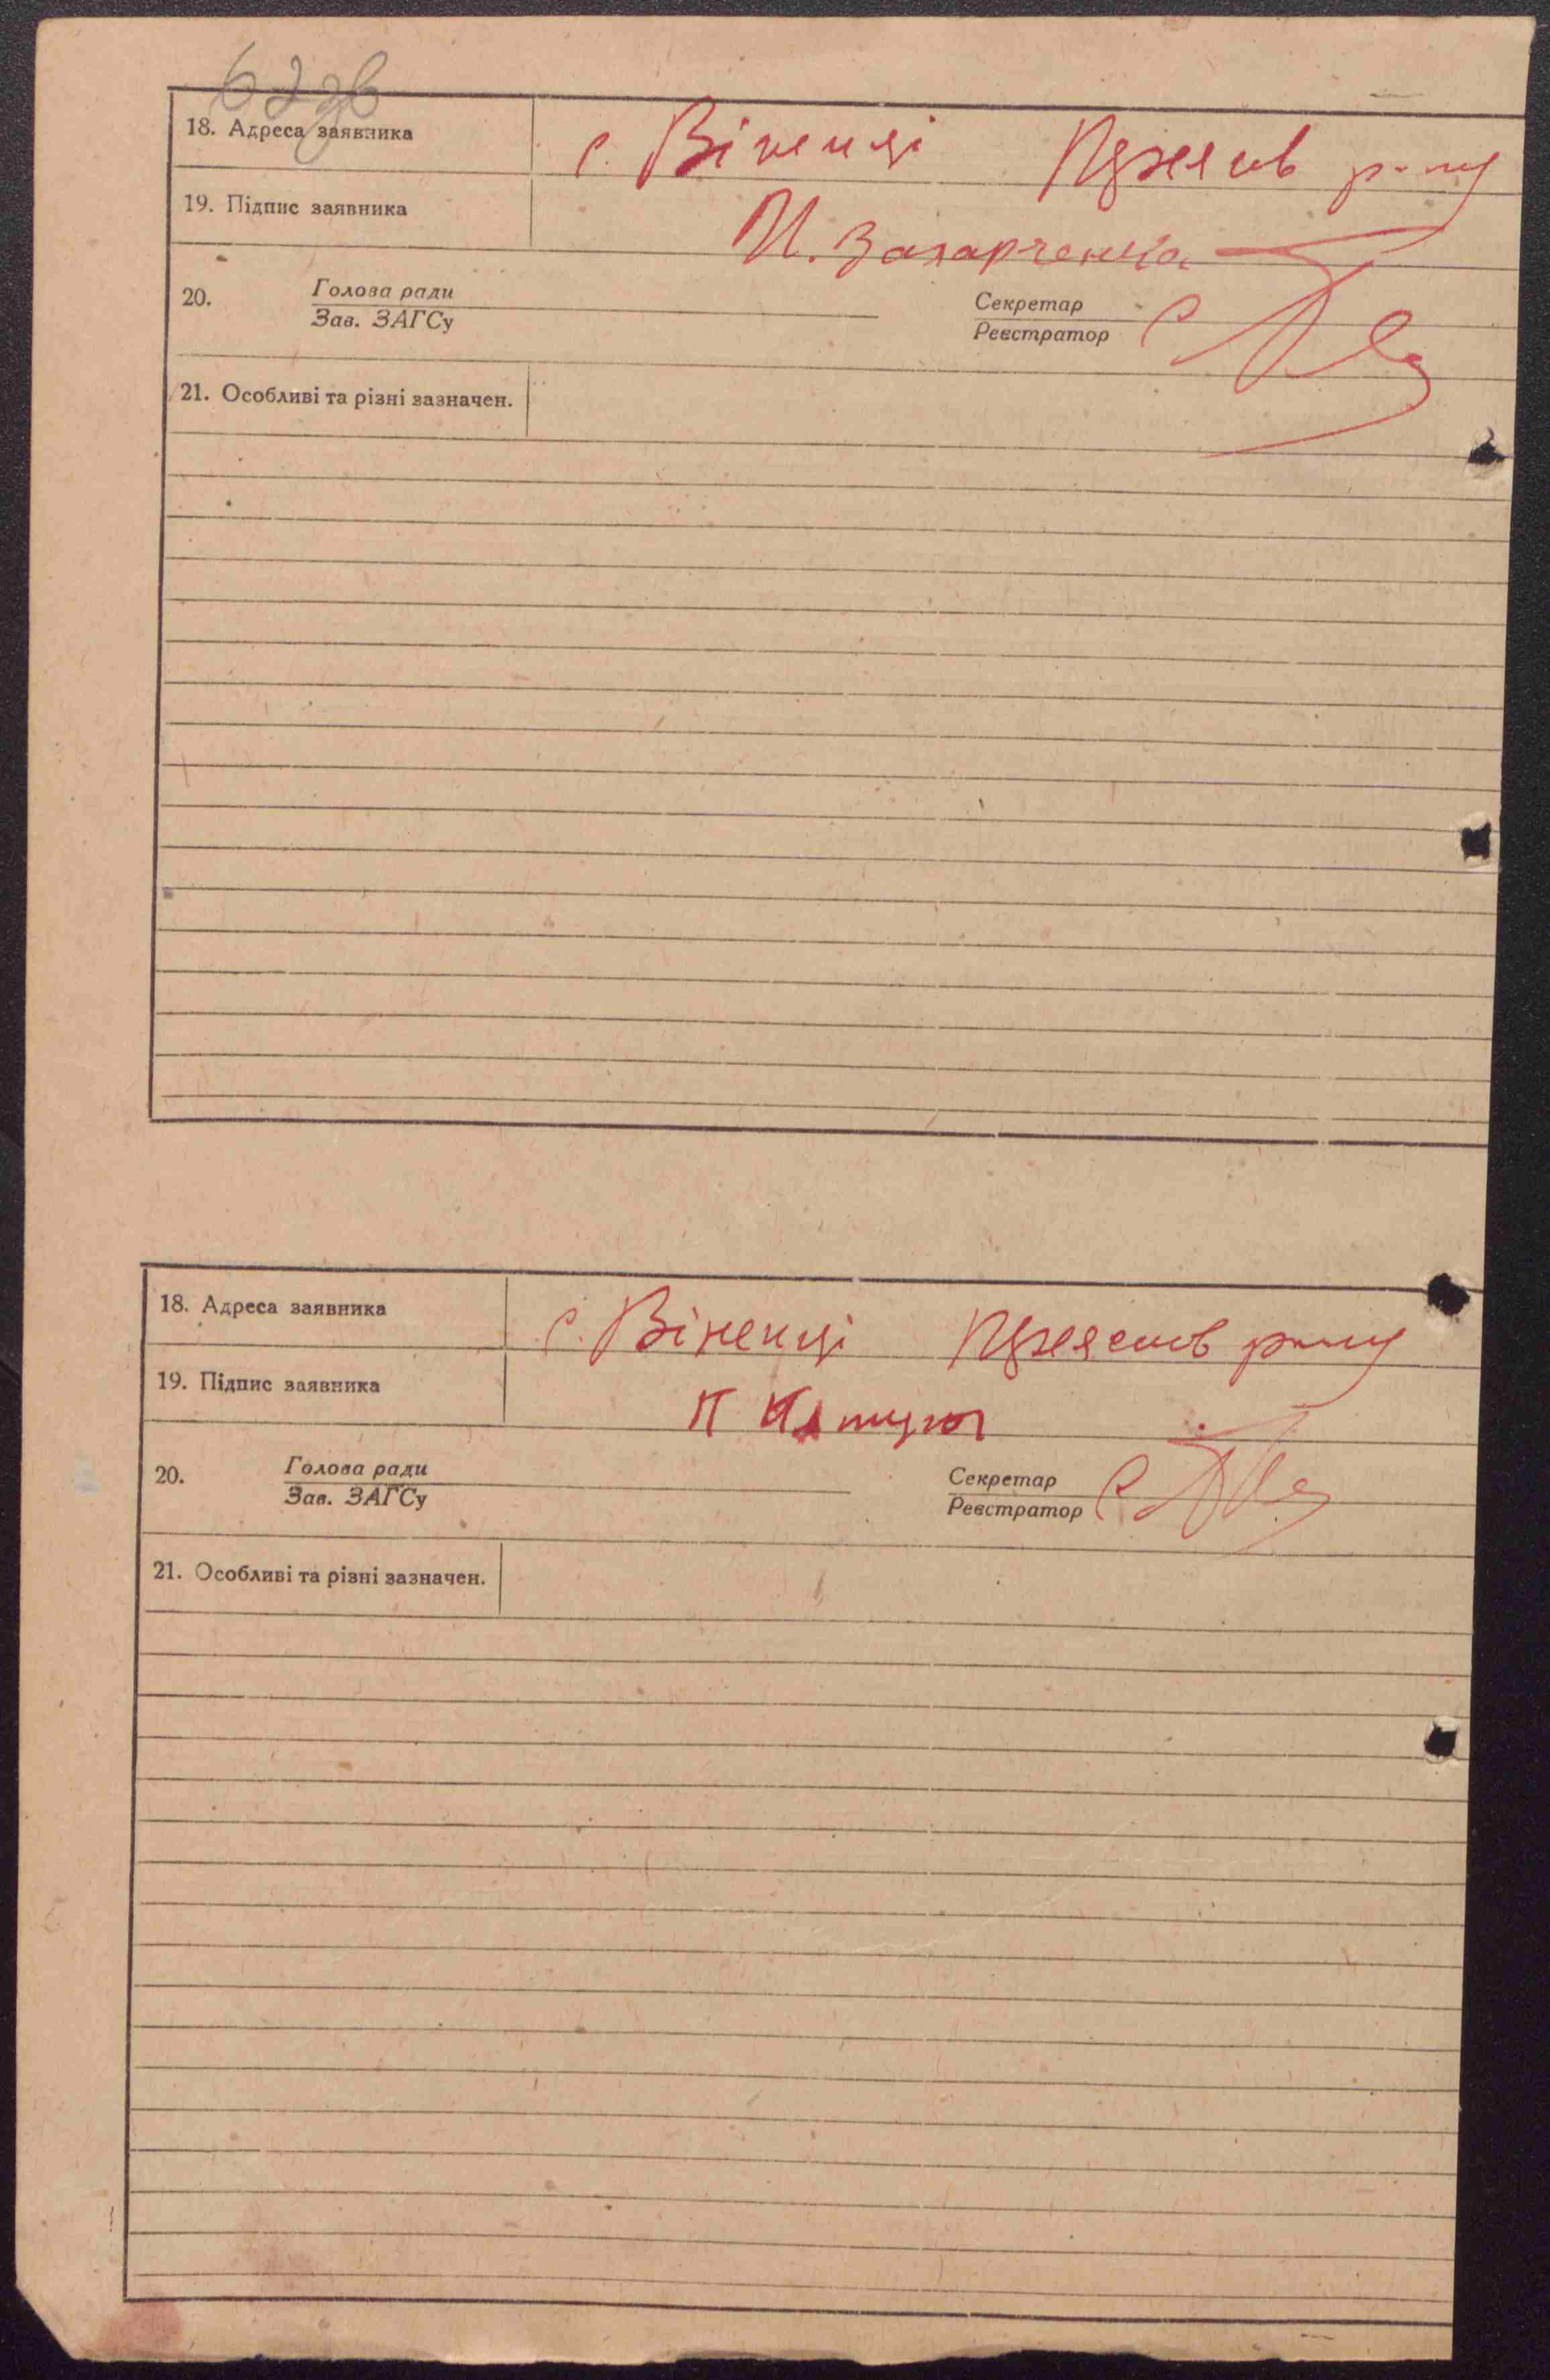 18. Адреса заявника с. Віненці р-ну
19. Підпис заявника И. Захарченко
20. Голова ради Секретар
Зав. ЗАГСу Реєстратор
21. Особливі та різні зазначен.
18. Адреса заявника с. Віненці р-ну
19. Підпис заявника П
20. Голова ради Секретар
Зав. ЗАГСу Реєстратор
21. Особливі та різні зазначен.